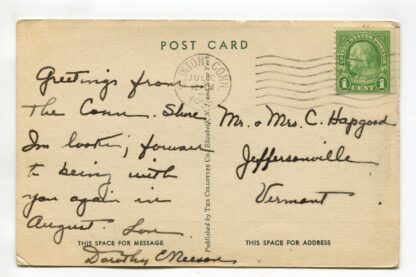 POST CARD
CLINTON, CONN.
JUL
UNITED STATES POSTAGE
1 CENT 1
Greetings from
The Conn. Shore
I'm lookin, forward
to being with
you again in
August. Love
Dorothy C.
THIS SPACE FOR MESSAGE
Published by THE COLLOTYPE CO., Elizabeth, N. J. and New York
Mr. & Mrs. C. Hapgood
Jeffersonville
Vermont
THIS SPACE FOR ADDRESS